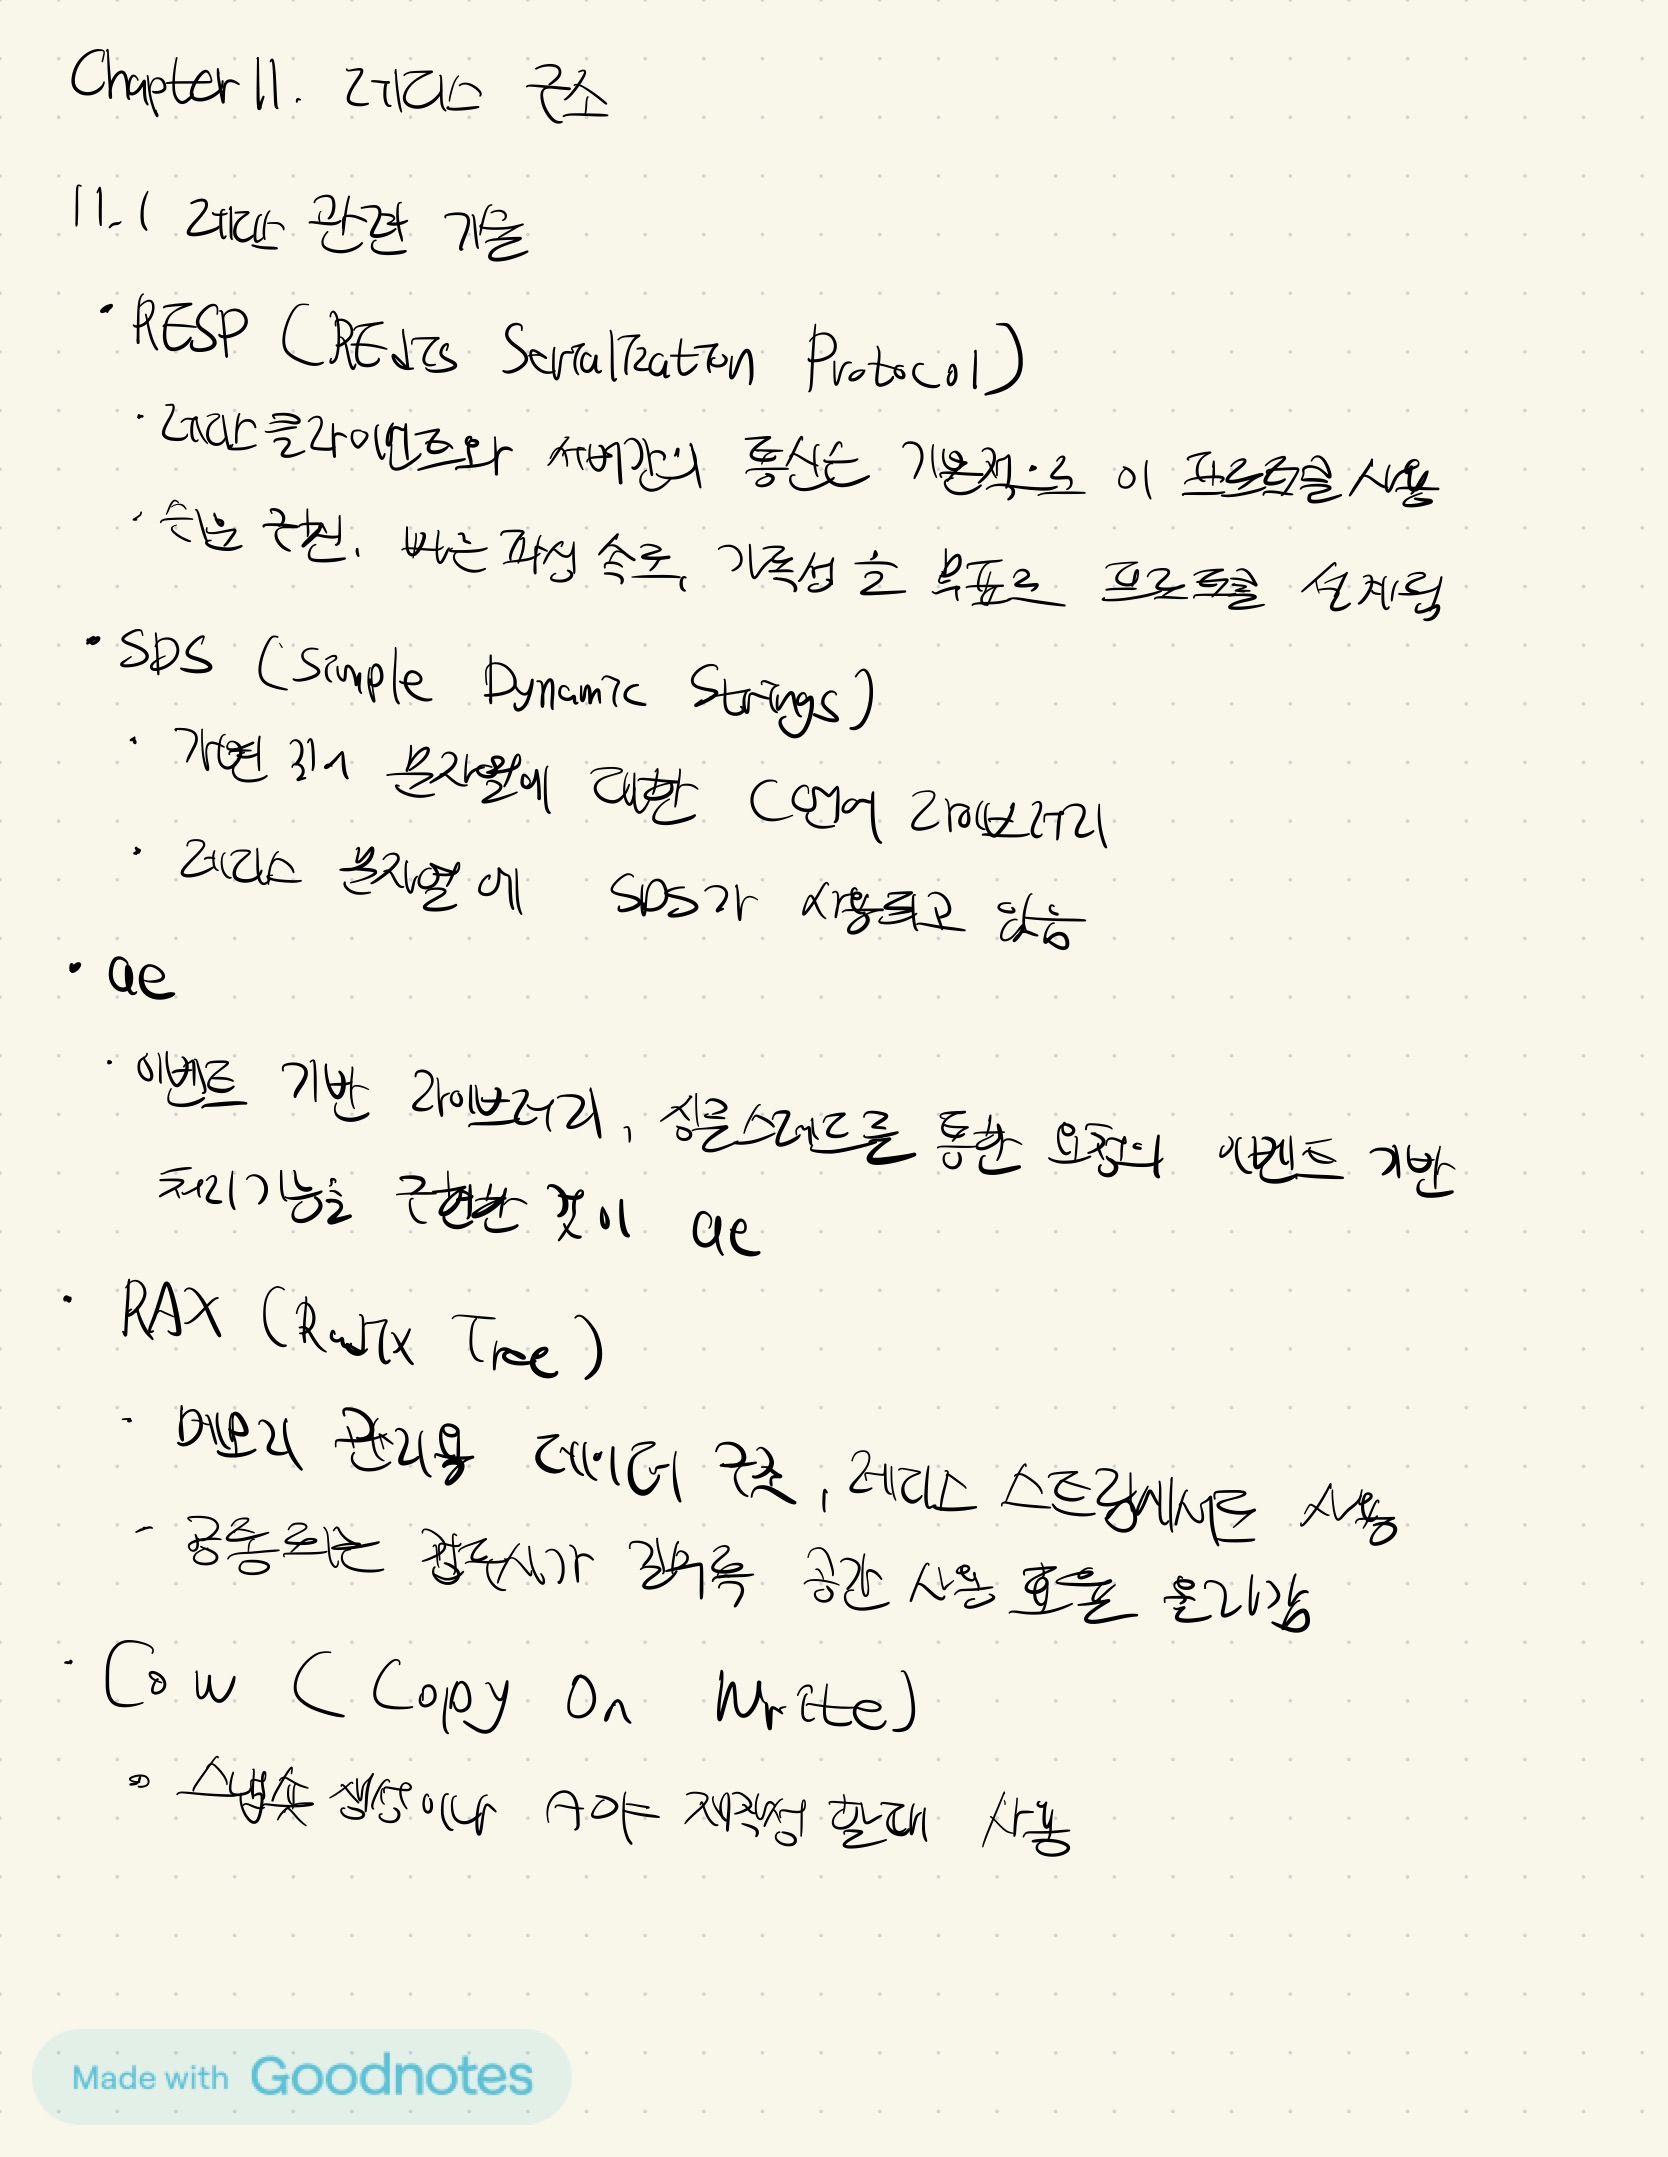 Chapter 11. 레디스 구조
11.1 레디스 관련 기술
· RESP (REdis Serialization Protocol)
· 레디스 클라이언트와 서버간의 통신은 기본적으로 이 프로토콜 사용
· 쉬운 구현, 빠른 파싱 속도, 가독성을 목표로 프로토콜 설계됨
· SDS (Simple Dynamic Strings)
· 가변 길이 문자열에 대한 C언어 라이브러리
· 레디스 문자열에 SDS가 사용되고 있음
· ae
· 이벤트 기반 라이브러리, 싱글스레드를 통한 요청의 이벤트 기반
처리기능을 구현한 것이 ae
· RAX (Radix Tree)
- 메모리 관리용 데이터 구조, 레디스 스트림에서도 사용
- 공통되는 접두사가 길수록 공간 사용 효율 올라감
· Cow (Copy On Write)
· 스냅숏 생성이나 AOF 재작성 할때 사용
Made with Goodnotes